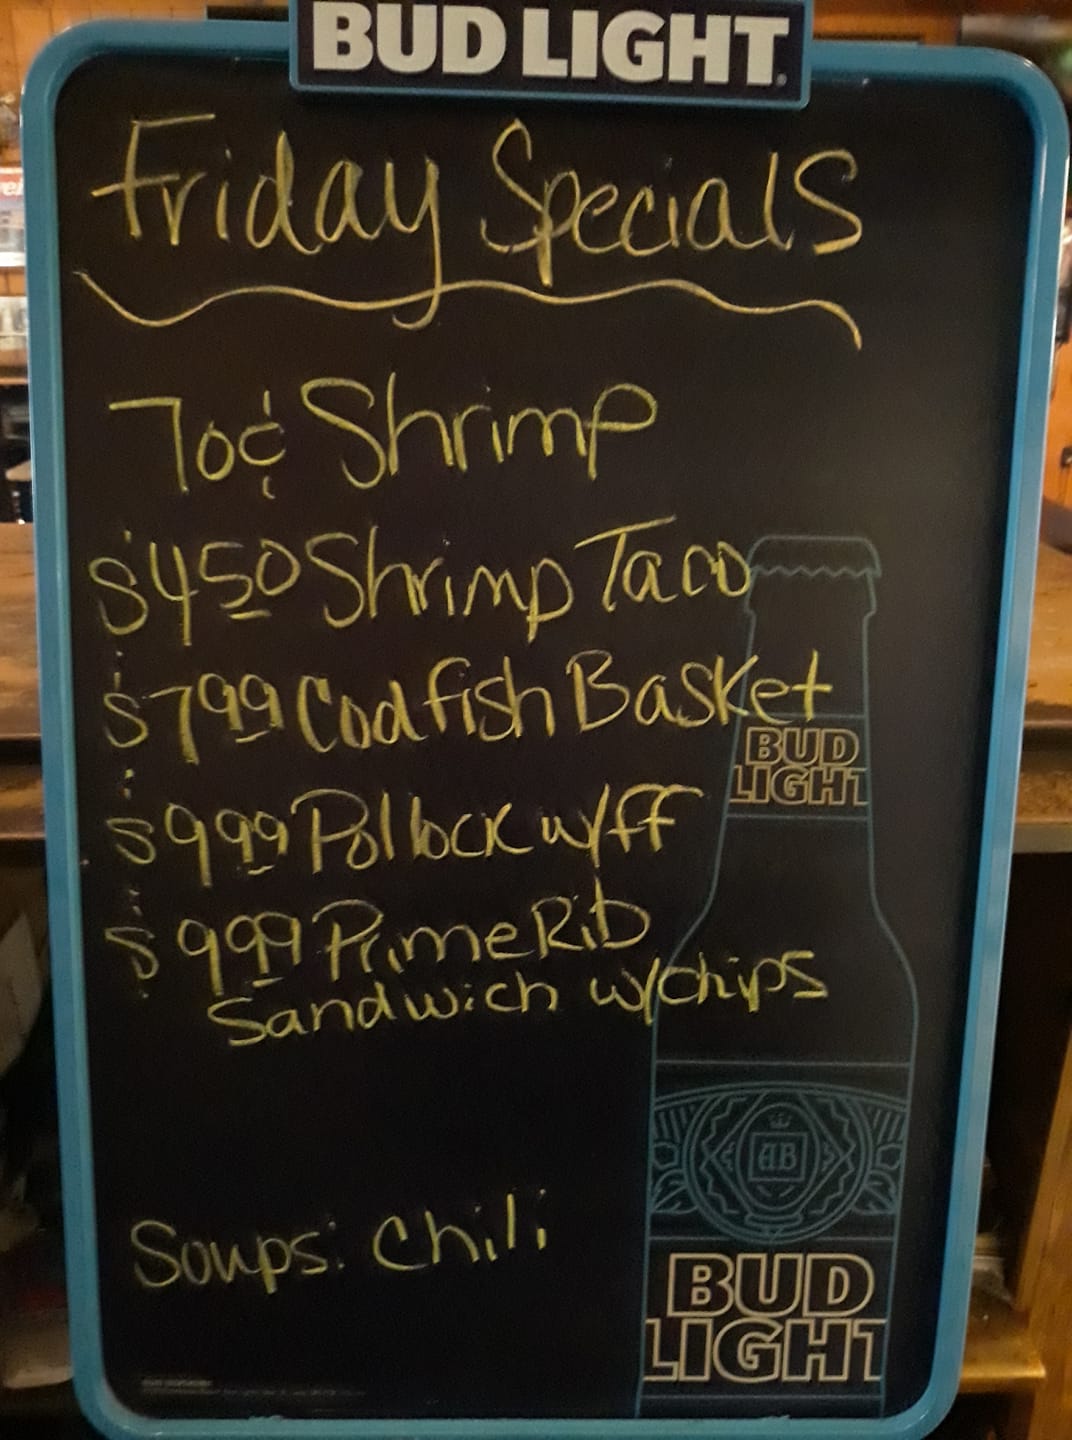 BUD LIGHT
Friday Specials
70¢ Shrimp
$4.50 Shrimp Taco
$7.99 Codfish Basket
$9.99 Pollock w/ff
$9.99 Prime Rib
Sandwich w/chips
Soups: Chili
BUD
LIGHT
AB
BUD
LIGHT